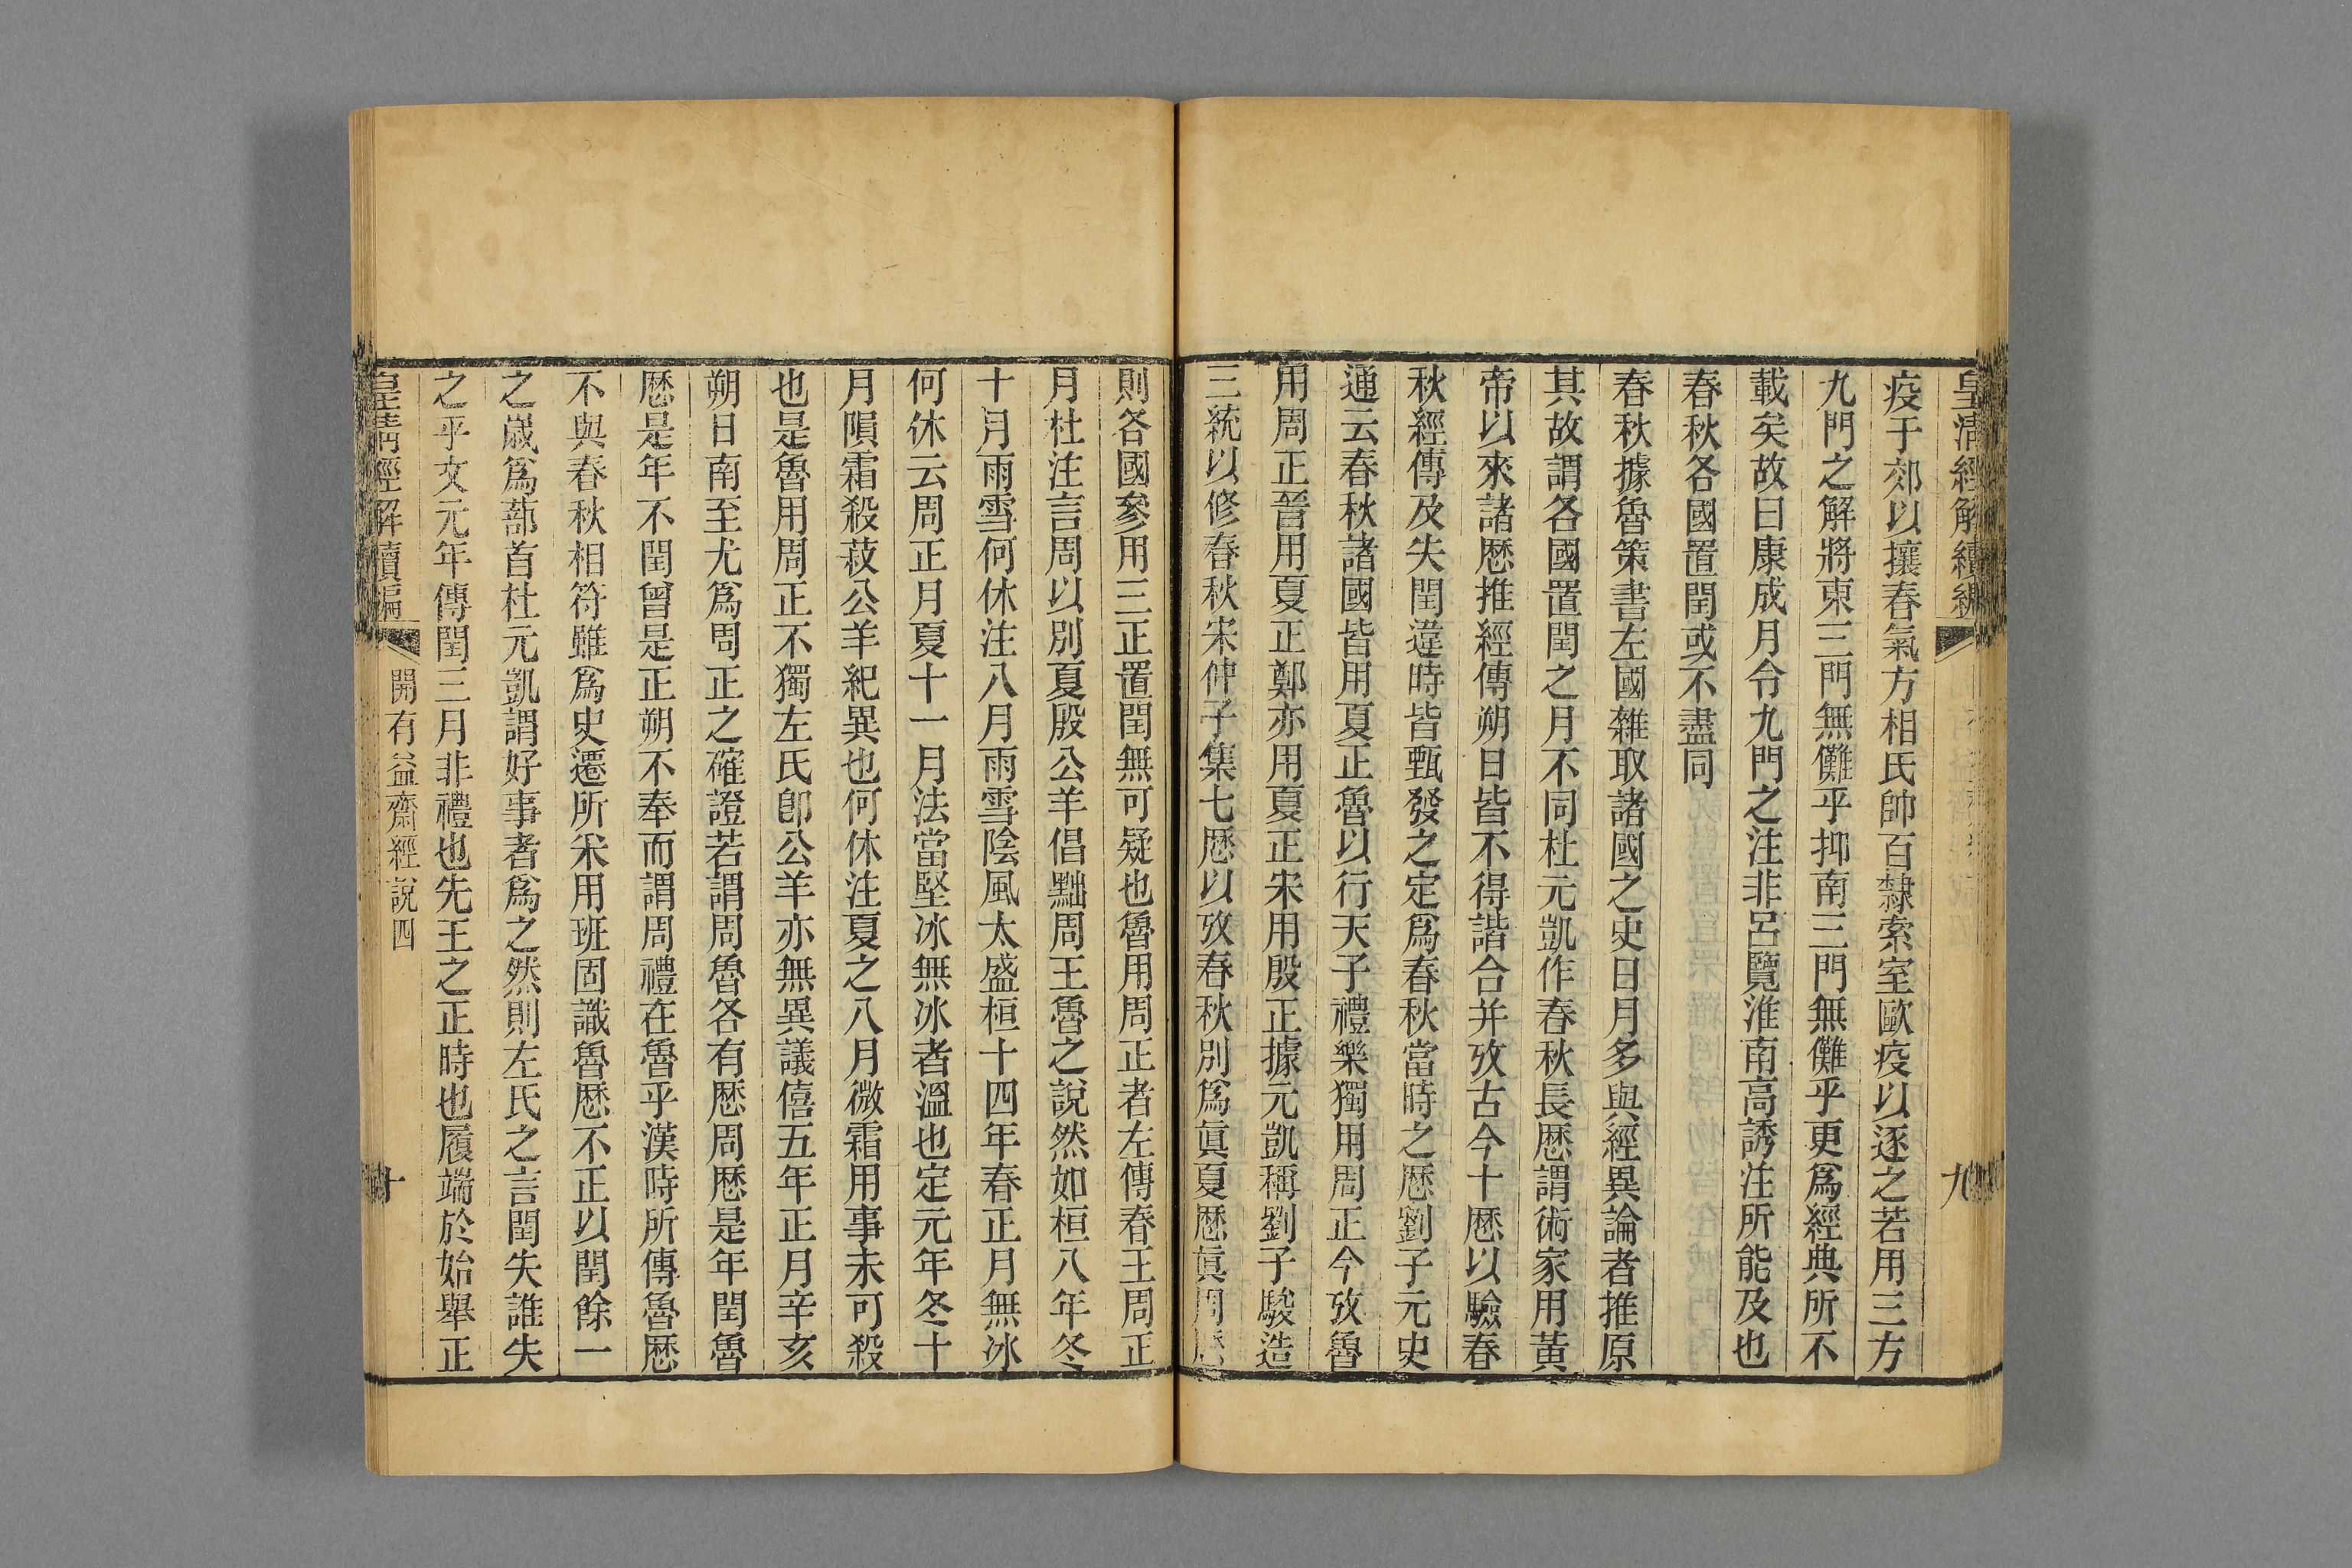 皇清經解續編
九
疫于郊以攘春氣方相氏帥百隸索室歐疫以逐之若用三方
九門之解將東三門無儺乎抑南三門無儺乎更爲經典所不
載矣故曰康成月令九門之注非呂覽淮南高誘注所能及也
春秋各國置閏或不盡同
春秋據魯策書左國雜取諸國之史日月多與經異論者推原
其故謂各國置閏之月不同杜元凱作春秋長厯謂術家用黃
帝以來諸厯推經傳朔日皆不得諧合并攷古今十厯以驗春
秋經傳及失閏違時皆甄發之定爲春秋當時之厯劉子元史
通云春秋諸國皆用夏正魯以行天子禮樂獨用周正今攷魯
用周正晉用夏正鄭亦用夏正宋用殷正據元凱稱劉子駿造
三統以修春秋宋仲子集七厯以攷春秋別爲眞夏厯眞周厯
則各國參用三正置閏無可疑也魯用周正者左傳春王周正
月杜注言周以別夏殷公羊倡黜周王魯之說然如桓八年冬
十月雨雪何休注八月雨雪陰風太盛桓十四年春正月無冰
何休云周正月夏十一月法當堅冰無冰者溫也定元年冬十
月隕霜殺菽公羊紀異也何休注夏之八月微霜用事未可殺
也是魯用周正不獨左氏卽公羊亦無異議僖五年正月辛亥
朔日南至尤爲周正之確證若謂周魯各有厯周厯是年閏魯
厯是年不閏曾是正朔不奉而謂周禮在魯乎漢時所傳魯厯
不與春秋相符雖爲史遷所釆用班固識魯厯不正以閏餘一
之歲爲蔀首杜元凱謂好事者爲之然則左氏之言閏失誰失
之乎文元年傳閏三月非禮也先王之正時也履端於始舉正
皇清經解續編
開有益齋經說四
十